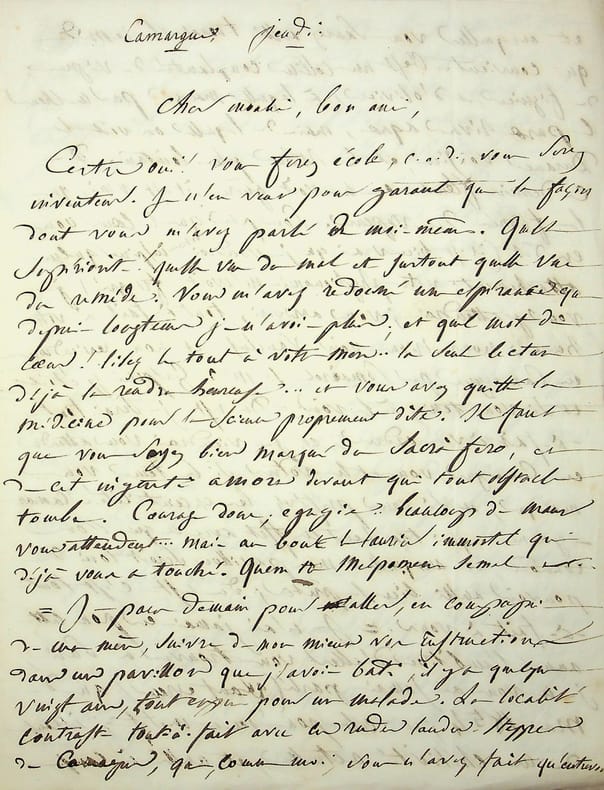 Camargue, jeudi.
Cher maître, bon ami,
Certes oui! vous ferez école, c.a.d. vous serez
inventeur. Je n'en veux pour garant que la façon
dont vous m'avez parlé de moi-même. Quelle
Supériorité! quelle vue du mal et surtout quelle vue
du remède. Vous m'avez redonné une espérance que
depuis longtems je n'avois plus, et quel mot de
cœur! lisez le tout à votre mère.. la seule lecture
déjà la rendra heureuse... et vous avez quitté la
médecine pour la Science proprement dite. Il faut
que vous soyez bien marqué du sacro fero, et
de cet ingens amore devant qui tout obstacle
tombe. Courage donc, beaucoup de maux
vous attendent... mais au bout le laurier immortel qui
déjà vous a touché. Quem tu Melpomene Semel
= Je pars demain pour aller, en compagnie
de ma mère, suivre de mon mieux vos instructions
dans un pavillon que j'avois bati, il y a quelque
vingt ans, tout exprès pour un malade. La localité
contraste tout-à-fait avec ces rudes landes Steppes
de Camargue, que, comme moi, vous n'avez fait qu'entrevoir